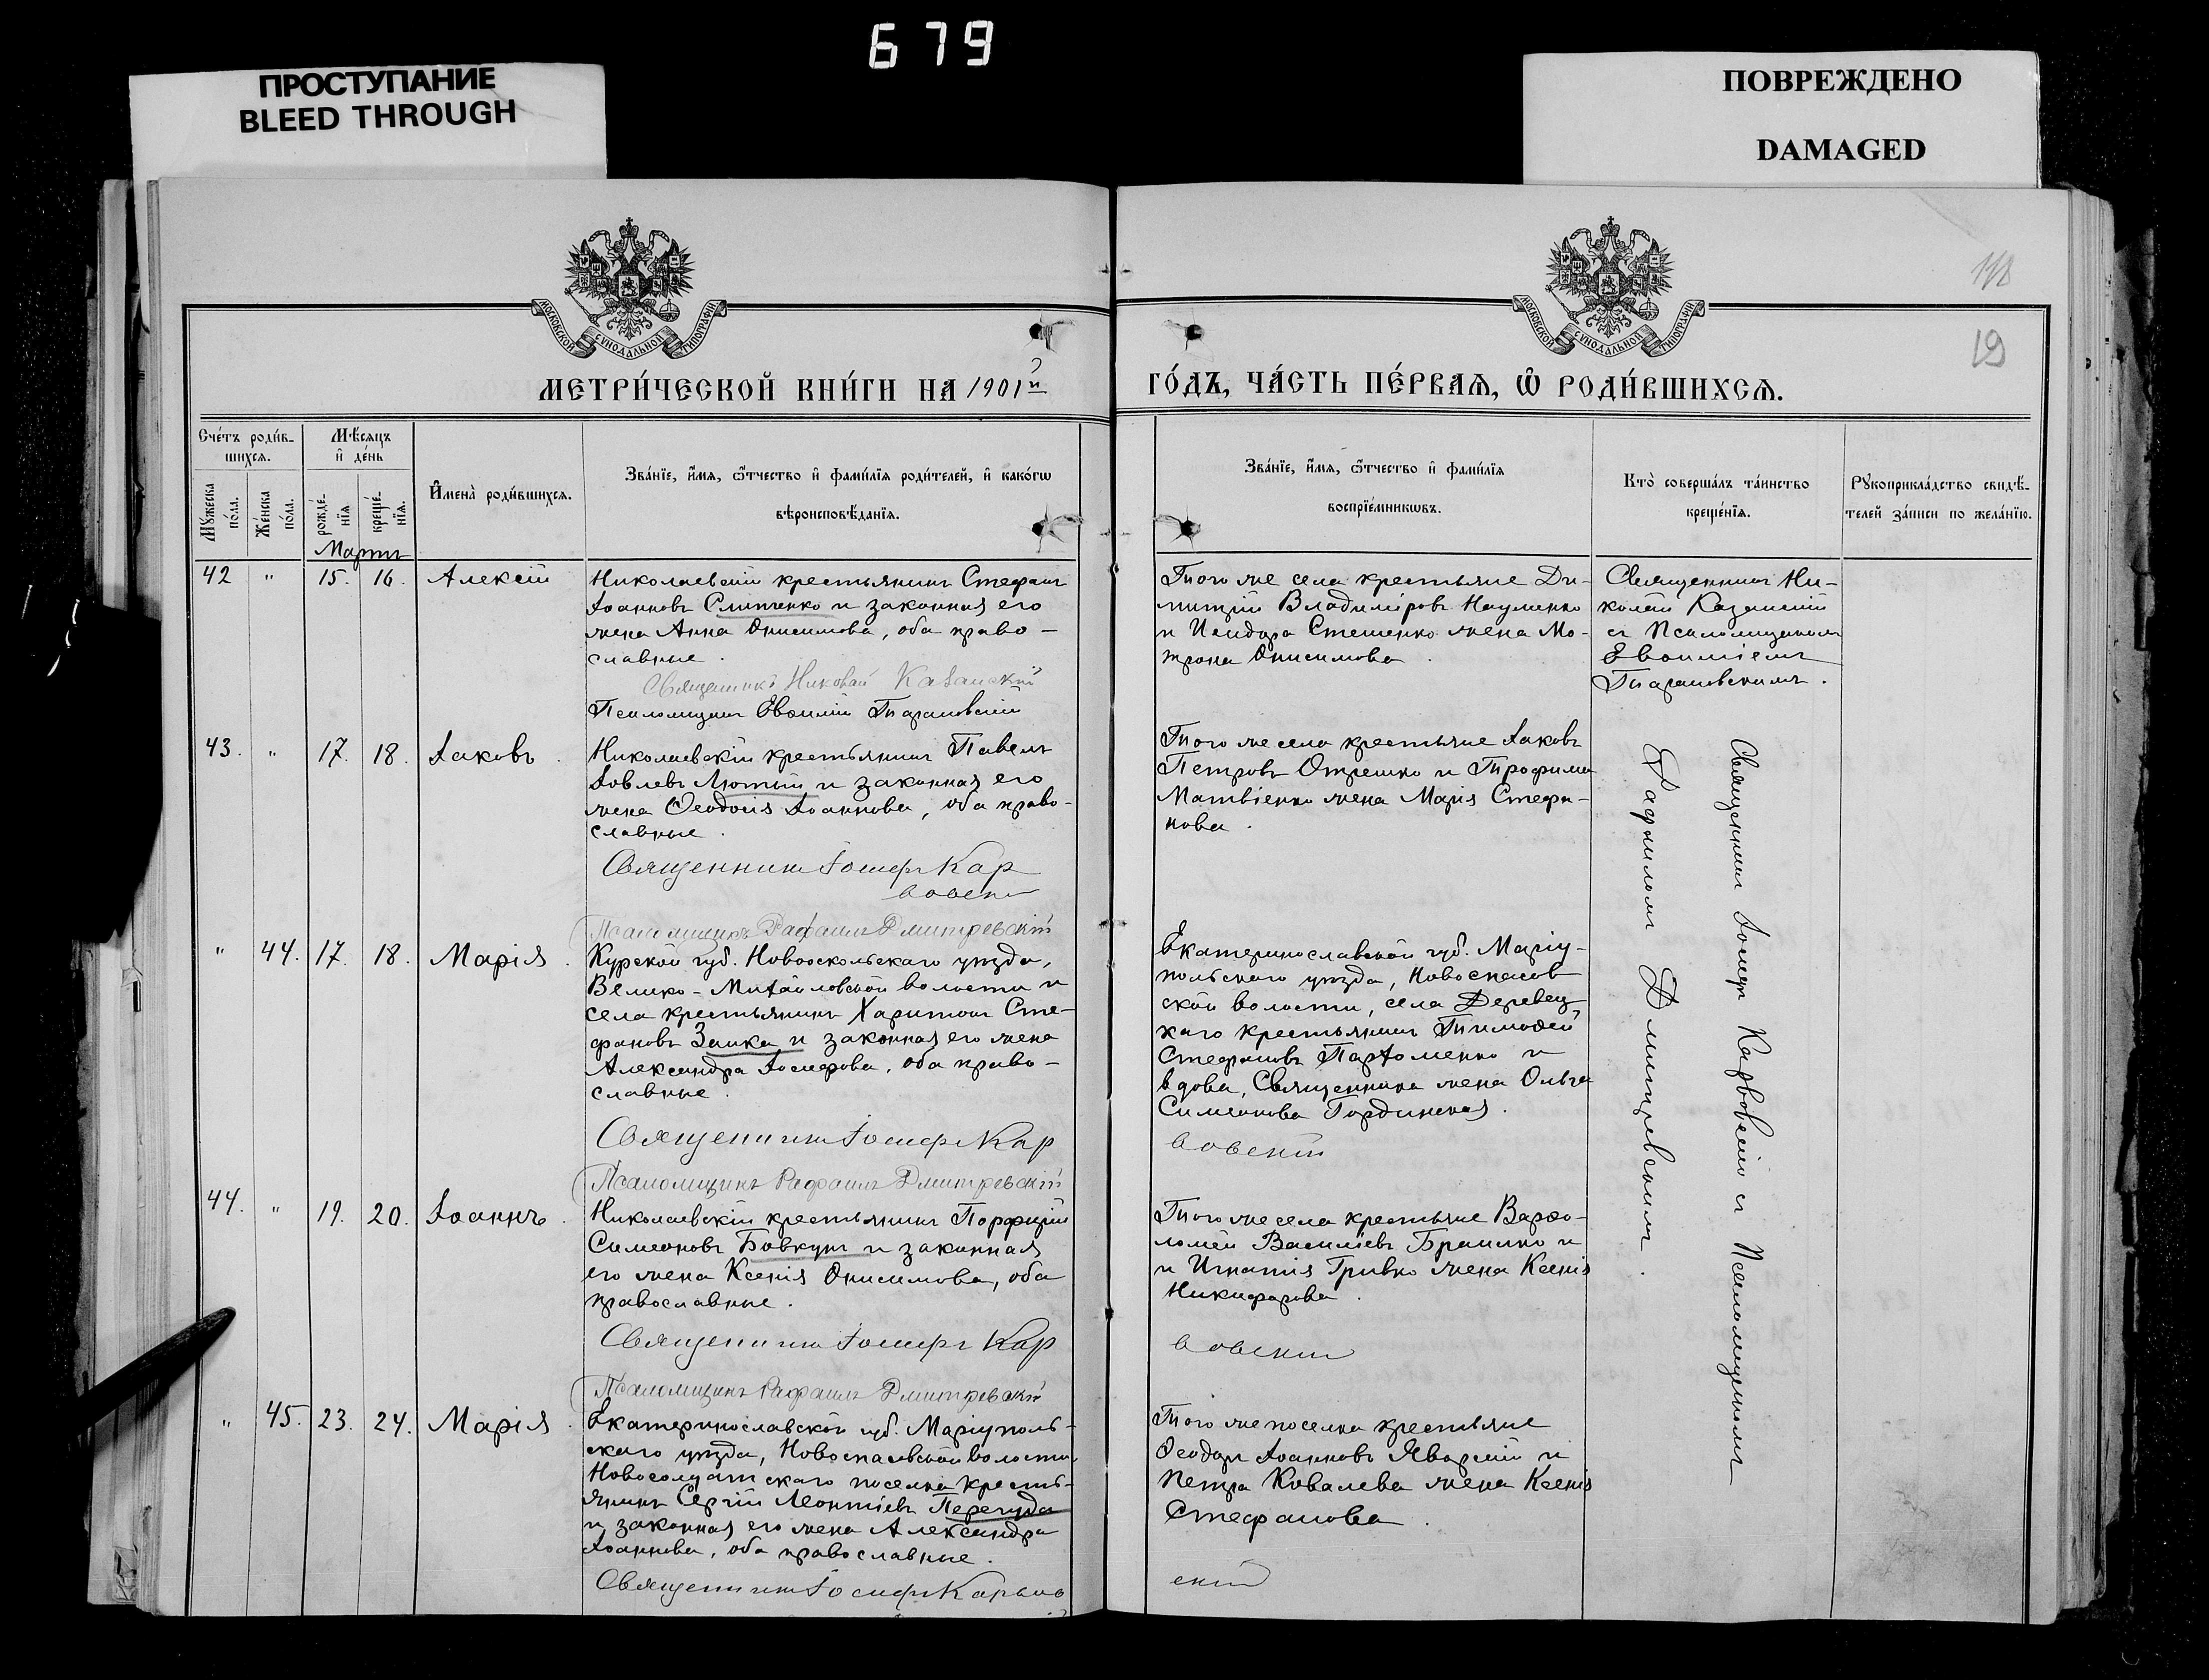 679
ПРОСТУПАНИЕ
BLEED THROUGH
ПОВРЕЖДЕНО
DAMAGED
19
МОСКОВСКОЙ СУНОДАЛЬНОЙ ТИПОГРАФІИ
МОСКОВСКОЙ СУНОДАЛЬНОЙ ТИПОГРАФІИ
МЕТРИ́ЧЕСКОЙ КНИ́ГИ НА 1901й
ГО́ДЪ, ЧА́СТЬ ПЕ́РВАѦ, Ѡ҆ РОДИ́ВШИХСѦ.
Сче́тъ роди́в-
шихсѧ.
Мѣ́сѧцъ
и҆ де́нь
Мꙋ́жеска
по́ла.
Же́нска
по́ла.
рожде́-
нїѧ
креще́-
нїѧ.
И҆мена̀ роди́вшихсѧ.
Зва́нїе, и҆́мѧ, ѻ҆́тчество и҆ фами́лїѧ роди́телей, и҆ како́гѡ
вѣроисповѣ́данїѧ.
Зва́нїе, и҆́мѧ, ѻ҆́тчество и҆ фами́лїѧ
воспрїе́мникѡвъ.
Кто̀ соверша́лъ та́инство
креще́нїѧ.
Рꙋкоприкла́дство свидѣ́-
телей за́писи по жела́нїю.
Мартъ
42 " 15. 16. Алексій
Николаевскій крестьянинъ Стефанъ
Іоанновъ Слипченко и законная его
жена Анна Онисимова, оба право-
славные.
Священникъ Николай Казанскій
Псаломщикъ Евѳимій Тарановскій
Того же села крестьяне Ди-
митрій Владиміровъ Науменко
и Исидора Стешенко жена Мо-
трона Онисимова.
Священникъ Ни-
колай Казанскій
съ Псаломщикомъ
Евѳиміемъ
Тарановскимъ.
43. " 17. 18. Іаковъ.
Николаевскій крестьянинъ Павелъ
Іовлевъ Лютый и законная его
жена Ѳеодосія Іоаннова, оба право-
славные.
Священникъ Іосифъ Кар
вовскій
Псаломщикъ Рафаилъ Дмитревскій
Того же села крестьяне Іаковъ
Петровъ Отрешко и Трофима
Матвіенко жена Марія Стефа-
нова.
Священникъ Іосифъ Карвовскій съ Псаломщикомъ
Рафаиломъ Дмитревскимъ.
" 44. 17. 18. Марія.
Курской губ. Новооскольскаго уѣзда,
Велико-Михайловской волости и
села крестьянинъ Харитонъ Сте-
фановъ Заика и законная его жена
Александра Іосифова, оба право-
славные.
Священникъ Іосифъ Кар
вовскій
Псаломщикъ Рафаилъ Дмитревскій
Екатеринославской губ. Маріу-
польскаго уѣзда, Новоспасов
ской волости, села Деревец
каго крестьянинъ Тимоѳей
Стефановъ Парѳоменко и
вдова, Священника жена Ольга
Симеонова Гординская.
44. " 19. 20. Іоаннъ.
Николаевскій крестьянинъ Порфирій
Симеоновъ Бовкунъ и законная
его жена Ксенія Онисимова, оба
православные.
Священникъ Іосифъ Кар
вовскій
Псаломщикъ Рафаилъ Дмитревскій
Того же села крестьяне Варѳо-
ломей Василіевъ Браилко и
и Игнатія Гривко жена Ксенія
Никифорова.
" 45. 23. 24. Марія.
Екатеринославской губ. Маріуполь-
скаго уѣзда, Новоспасовской волости,
Новосолдатскаго поселка кресть-
янинъ Сергій Леонтіевъ Перегуда
и законная его жена Александра
Іоаннова, оба православные.
Священникъ Іосифъ Карвов
скій
Того же поселка крестьяне
Ѳеодоръ Іоанновъ Яворскій и
Петра Ковалева жена Ксенія
Стефанова.